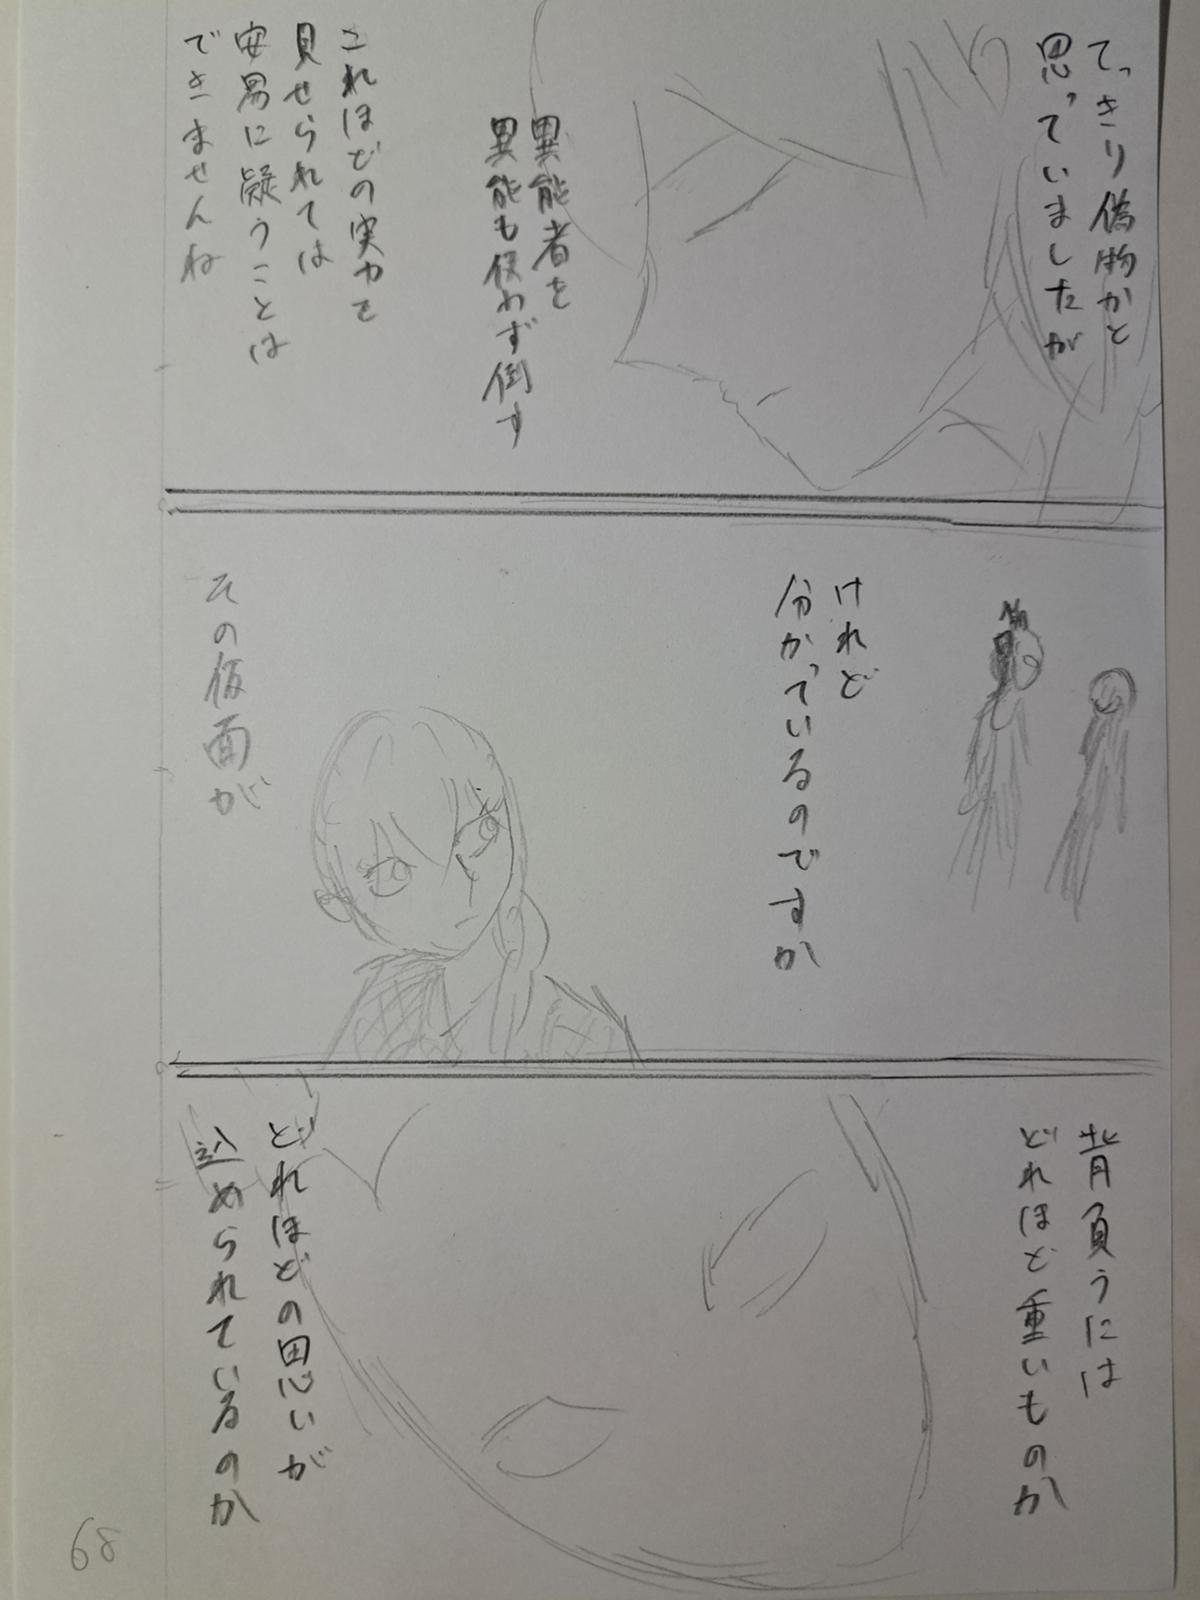 てっきり偽物かと
思っていましたが
異能者を
異能も使わず倒す
これほどの実力を
見せられては
安易に疑うことは
できませんね
けれど
分かっているのですか
その仮面が
背負うには
どれほど重いものか
どれほどの思いが
込められているのか
68